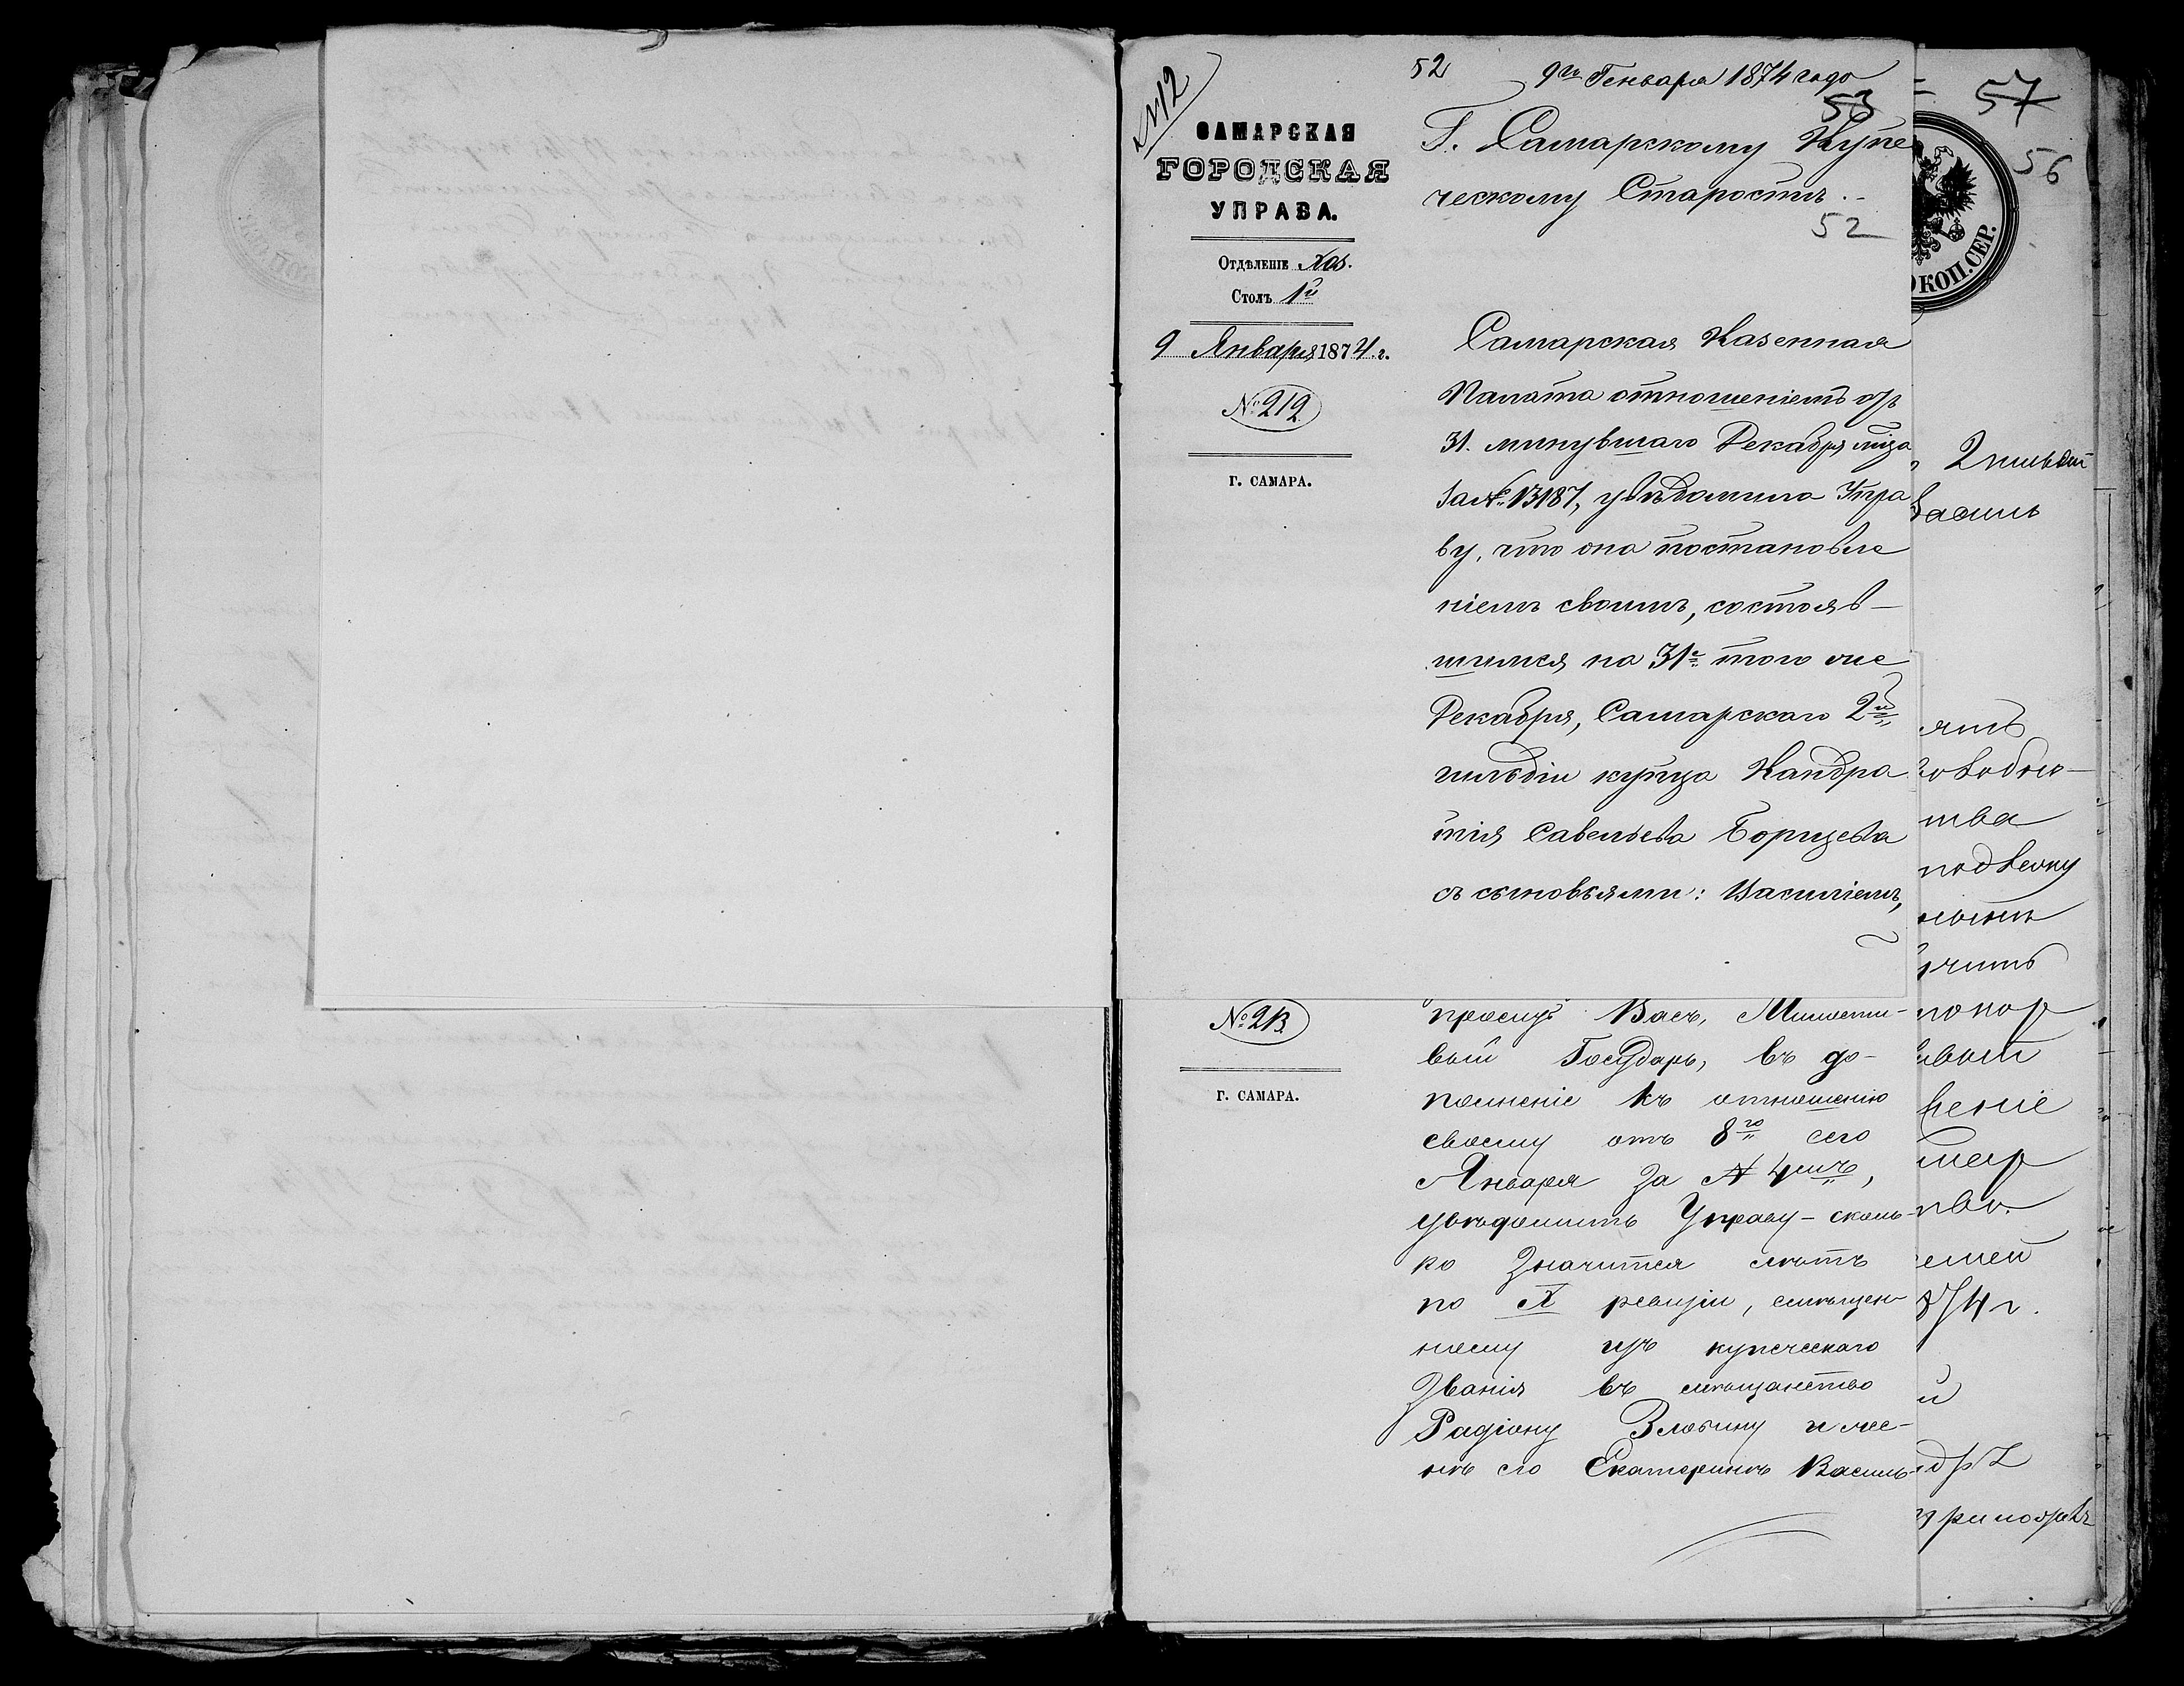 №12
52
9го Генваря 1874 года
53
САМАРСКАЯ
ГОРОДСКАЯ
УПРАВА.
Отдѣленіе Хоз.
Столъ 1й
9 Января 1874 г.
№ 212
Г. САМАРА.
Г. Самарскому Купе
ческому Старостѣ.
52
Самарская Казенная
Палата отношеніемъ отъ
31. минувшаго Декабря мѣца
за № 13187, увѣдомила Упра
ву, что она постановле
ніемъ своимъ, состояв-
шимся на 31е того же
Декабря, Самарскаго 2й
гильдіи купца Кандра
тія Савельева Борщева
съ сыновьями: Василіемъ,
№ 213
Г. САМАРА.
прошу Васъ, Милости-
вый Государь, въ до-
полненіе къ отношенію
своему отъ 8го сего
Января за № 4мъ,
увѣдомить Управу - сколь-
ко значится лѣтъ
по X ревизіи, смѣщен-
ному изъ купеческаго
званія въ мѣщанство
Радіону Злобину и же-
нѣ его Екатеринѣ Василь-
57
56
КОП. СЕР.
874 г.